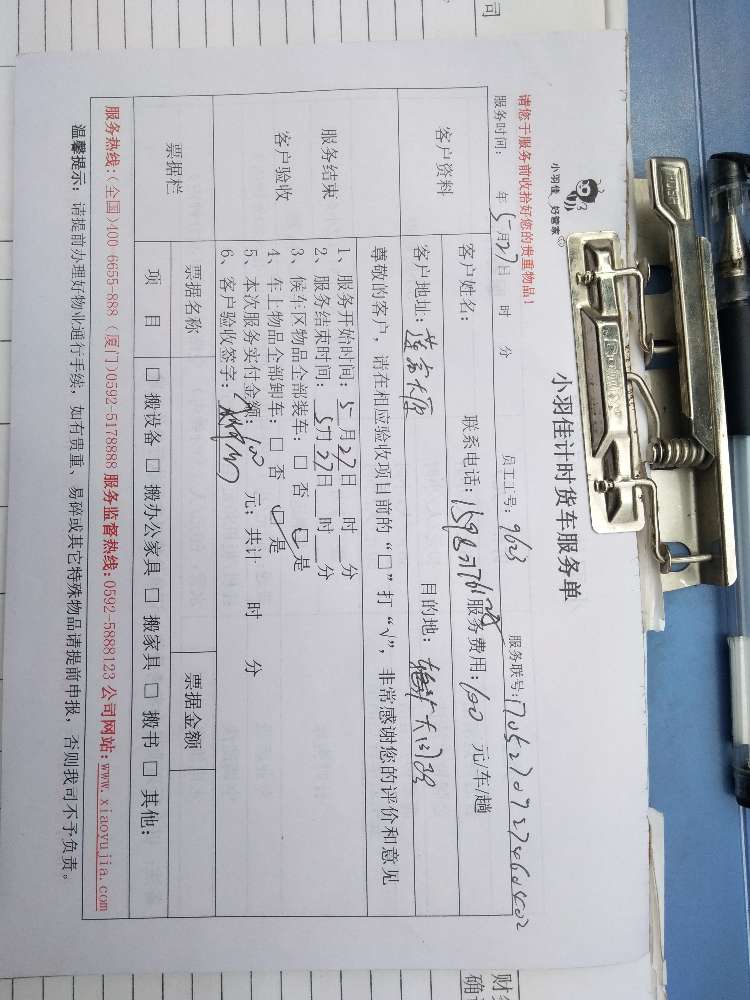 小羽佳 好管家
小羽佳计时货车服务单
请您于服务前收拾好您的贵重物品!
服务时间: 年 5月27日 时 分 员工工号: 9623 服务联号:
客户资料
客户姓名: 联系电话: 服务费用: 100 元/车/趟
客户地址: 目的地:
尊敬的客户, 请在相应验收项目前的 “□” 打 “√”, 非常感谢您的评价和意见
服务结束
客户验收
1、服务开始时间: 5月27日 时 分
2、服务结束时间: 5月27日 时 分
3、候车区物品全部装车: □ 否 ☑ 是
4、车上物品全部卸车: □ 否 ☑ 是
5、本次服务实付金额: 100 元; 共计 时 分
6、客户验收签字:
票据栏 票据名称 票据金额
项 目 □ 搬设备 □ 搬办公家具 □ 搬家具 □ 搬书 □ 其他:
服务热线:(全国)400-6655-888 (厦门)0592-5178888 服务监督热线:0592-5888123 公司网站:www.xiaoyujia.com
温馨提示: 请提前办理好物业通行手续, 如有贵重、易碎或其它特殊物品请提前申报, 否则我司不予负责。
司
财
确